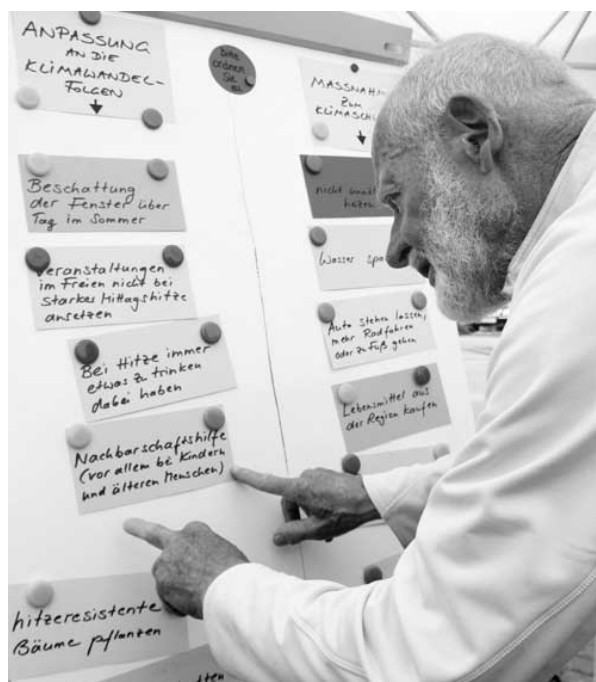 ANPASSUNG
AN DIE
KLIMAWANDEL-
FOLGEN
Bitte
ordnen
Sie
zu
Beschattung
der Fenster über
Tag im Sommer
Veranstaltungen
im Freien nicht bei
starker Mittagshitze
ansetzen
Bei Hitze immer
etwas zu trinken
dabei haben
Nachbarschaftshilfe
(vor allem bei Kindern
und älteren Menschen)
hitzeresistente
Bäume pflanzen
MASSNAHM
ZUM
KLIMASCHU
nicht
heizen
Wasser spa
Auto stehen lassen,
mehr Radfahren
oder zu Fuß gehen
Lebensmittel aus
der Region kaufen